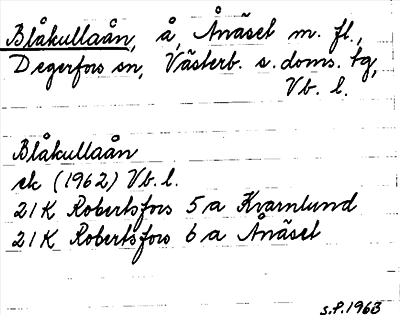 Blåkullaån, å, Ånäset m. fl.,
Degerfors sn, Västerb. s. doms. tg,
Vb. l.
Blåkullaån
ek (1962) Vb. l.
21K Robertsfors 5a Kvarnlund
21K Robertsfors 6a Ånäset
s.f. 1963